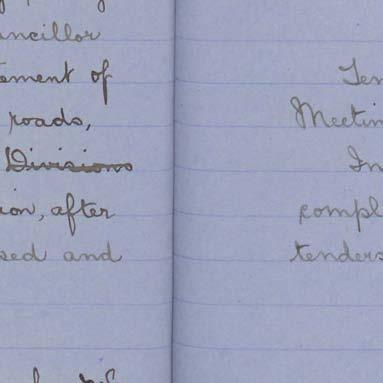 ncillor
ement of
roads,
Divisions
ion, after
sed and
Ten
Meetin
In
compl
tenders